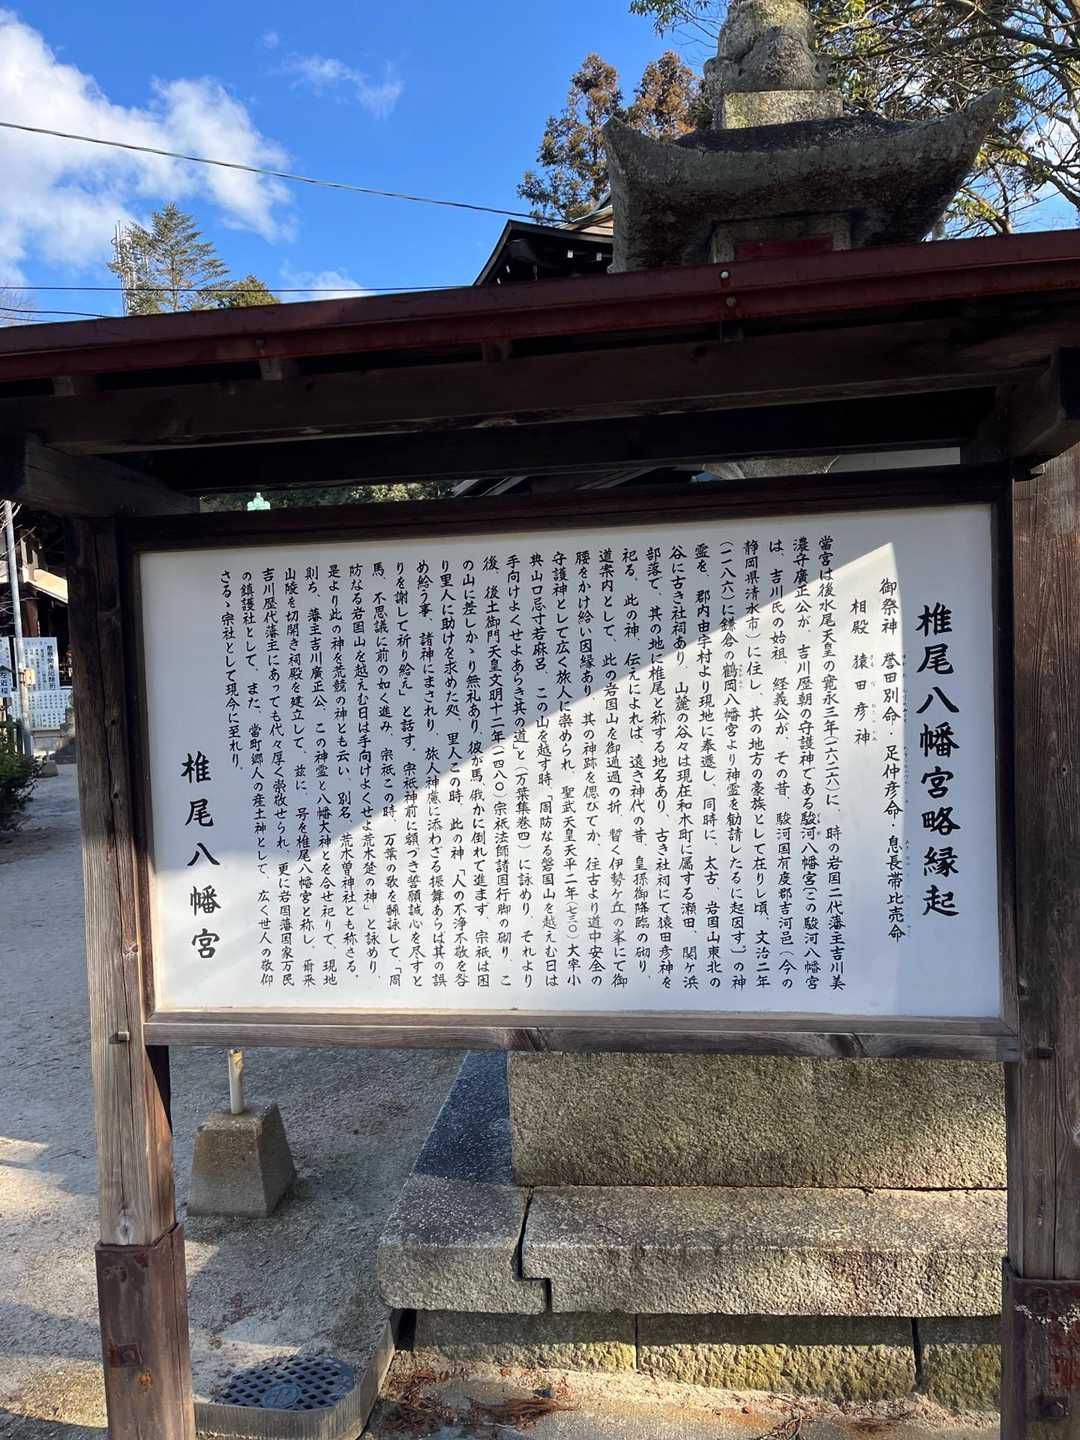 椎尾八幡宮略縁起
御祭神 誉田別命・足仲彦命・息長帯比売命
相殿 猿田彦神
當宮は後水尾天皇の寛永三年(一六二六)に、時の岩国二代藩主吉川美
濃守廣正公が、吉川歴朝の守護神である駿河八幡宮(この駿河八幡宮
は、吉川氏の始祖、経義公が、その昔、駿河国有度郡吉河邑(今の
静岡県清水市)に住し、其の地方の豪族として在りし頃、文治二年
(一一八六)に鎌倉の鶴岡八幡宮より神霊を勧請したるに起因す。)の神
霊を、郡内由宇村より現地に奉遷し、同時に、太古、岩国山東北の
谷に古き社祠あり、山麓の谷々は現在和木町に属する瀬田、関ヶ浜
部落で、其の地に椎尾と称する地名あり、古き社祠にて猿田彦神を
祀る。此の神、伝えによれば、遠き神代の昔、皇孫御降臨の砌り、
道案内として、此の岩国山を御通過の折、暫く伊勢ヶ丘の峯にて御
腰をかけ給い因縁あり、其の神跡を偲びてか、往古より道中安全の
守護神として広く旅人に崇められ、聖武天皇天平二年(七三〇)大宰小
典山口忌寸若麻呂、この山を越す時、「周防なる磐国山を越えむ日は
手向けよくせよあらき其の道」と(万葉集巻四)に詠めり、それより
後、後土御門天皇文明十二年(一四八〇)宗祇法師諸国行脚の砌り、こ
の山に差しかゝり無礼あり、彼が馬俄かに倒れて進まず、宗祇は困
り里人に助けを求めた処、里人この時、此の神「人の不浄不敬を咎
め給う事、諸神にまされり、旅人神慮に添わざる振舞あらば其の誤
りを謝して祈り給え」と話す。宗祇神前に額づき誓願誠心を尽すと
馬、不思議に前の如く進み、宗祇この時、万葉の歌を翻詠して、「周
防なる岩国山を越えむ日は手向けよくせよ荒木楚の神」と詠めり、
是より此の神を荒競の神とも云い、別名、荒木曽神社とも称さる。
則ち、藩主吉川廣正公、この神霊と八幡大神とを合せ祀りて、現地
山陵を切開き祠殿を建立して、茲に、号を椎尾八幡宮と称し、爾来
吉川歴代藩主にあっても代々厚く崇敬せられ、更に岩国藩国家万民
の鎮護社として、また、當町郷人の産土神として、広く世人の敬仰
さるゝ宗社として現今に至れり。
椎尾八幡宮